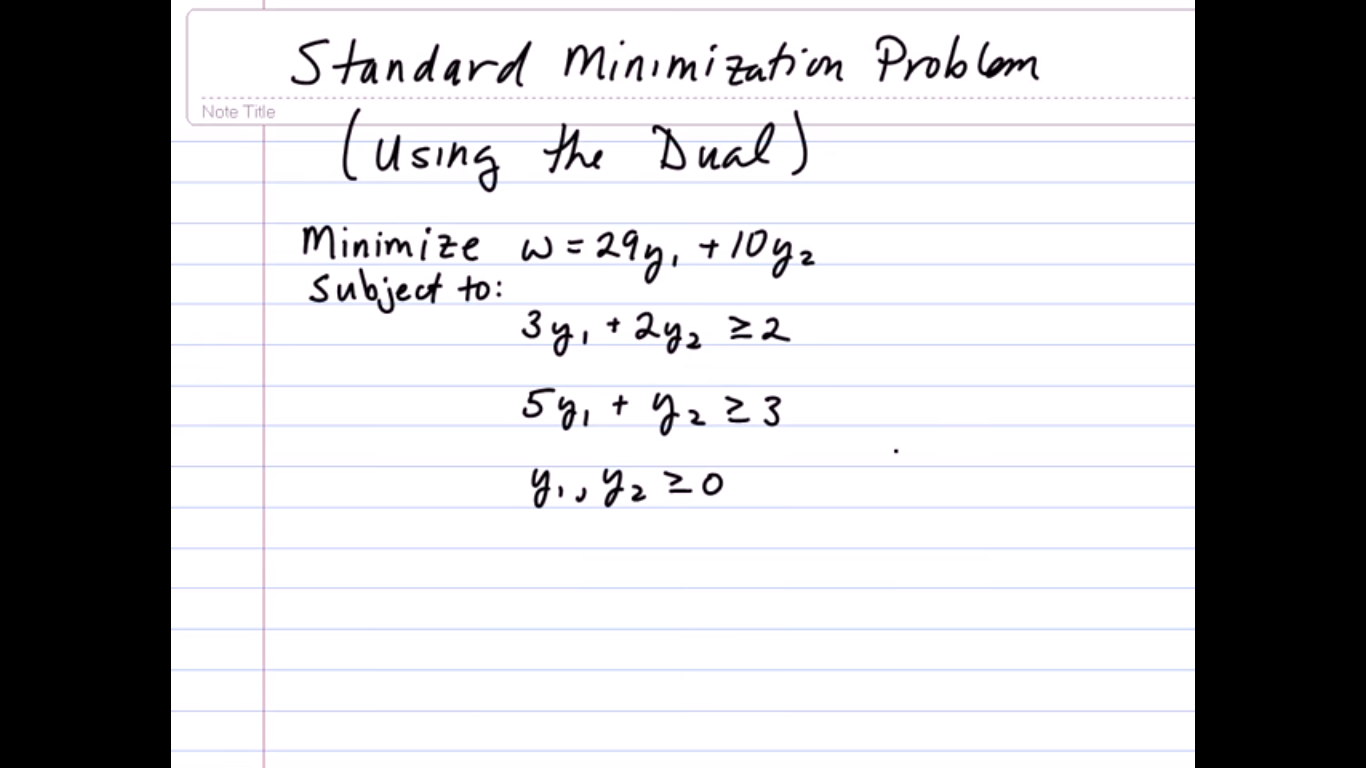 Standard Minimization Problem
Note Title
(Using the Dual)
Minimize w = 29y₁ + 10y₂
Subject to:
3y₁ + 2y₂ ≥ 2
5y₁ + y₂ ≥ 3
y₁, y₂ ≥ 0